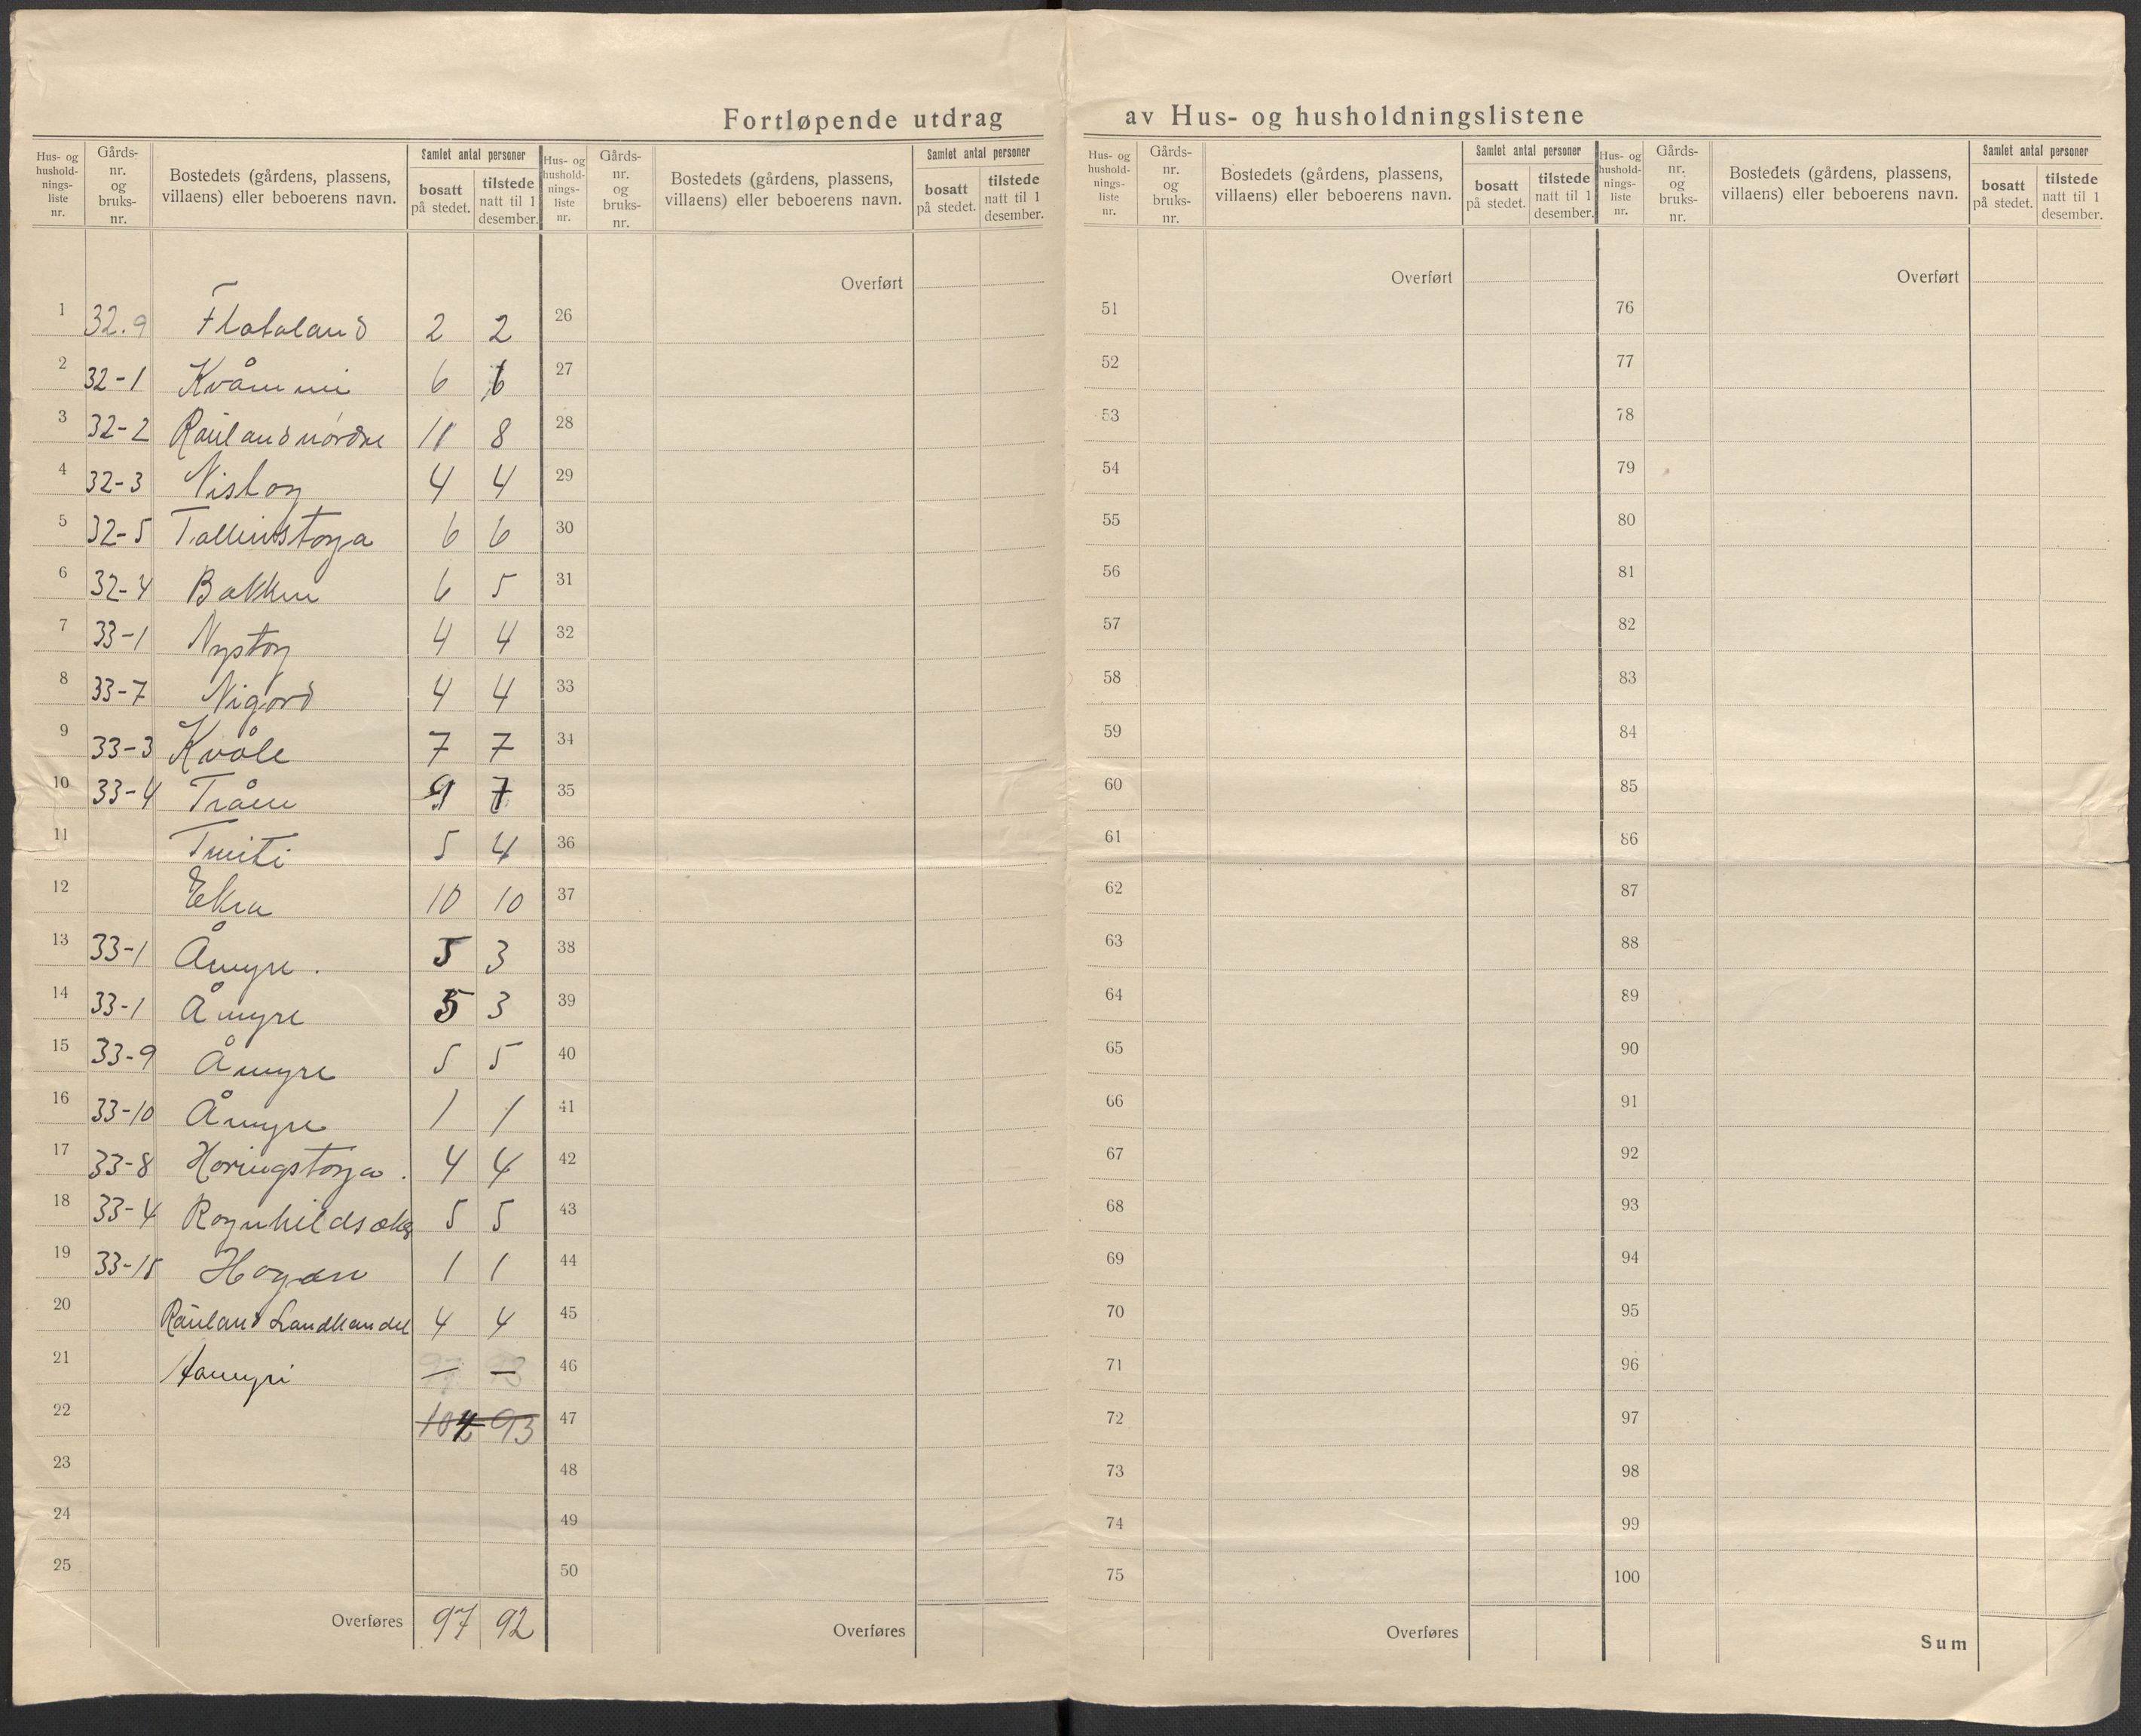 Fortløpende utdrag av Hus- og husholdningslistene
Hus- og hushold-nings-liste nr. Gårds-nr. og bruks-nr. Bostedets (gårdens, plassens, villaens) eller beboerens navn. Samlet antal personer bosatt på stedet. tilstede natt til 1 desember.
1 32.9 Flataland 2 2
2 32-1 Kvåmmi 6 6
3 32-2 Rauland nørdre 11 8
4 32-3 Nistog 4 4
5 32-5 6 6
6 32-4 Bakken 6 5
7 33-1 Nystog 4 4
8 33-7 Nigard 4 4
9 33-3 Kvåle 7 7
10 33-4 9 7
11 5 4
12 Ekra 10 10
13 33-1 Åmyre. 5 3
14 33-1 Åmyre 5 3
15 33-9 Åmyre 5 5
16 33-10 Åmyre 1 1
17 33-8 4 4
18 33-4 5 5
19 33-15 Hagen 1 1
20 Rauland Landhandel 4 4
21 Aamyri — —
22 104 93
23
24
25
Overføres 97 92
Hus- og hushold-nings-liste nr. Gårds-nr. og bruks-nr. Bostedets (gårdens, plassens, villaens) eller beboerens navn. Samlet antal personer bosatt på stedet. tilstede natt til 1 desember.
Overført
26
27
28
29
30
31
32
33
34
35
36
37
38
39
40
41
42
43
44
45
46
47
48
49
50
Overføres
Hus- og hushold-nings-liste nr. Gårds-nr. og bruks-nr. Bostedets (gårdens, plassens, villaens) eller beboerens navn. Samlet antal personer bosatt på stedet. tilstede natt til 1 desember.
Overført
51
52
53
54
55
56
57
58
59
60
61
62
63
64
65
66
67
68
69
70
71
72
73
74
75
Overføres
Hus- og hushold-nings-liste nr. Gårds-nr. og bruks-nr. Bostedets (gårdens, plassens, villaens) eller beboerens navn. Samlet antal personer bosatt på stedet. tilstede natt til 1 desember.
Overført
76
77
78
79
80
81
82
83
84
85
86
87
88
89
90
91
92
93
94
95
96
97
98
99
100
Sum